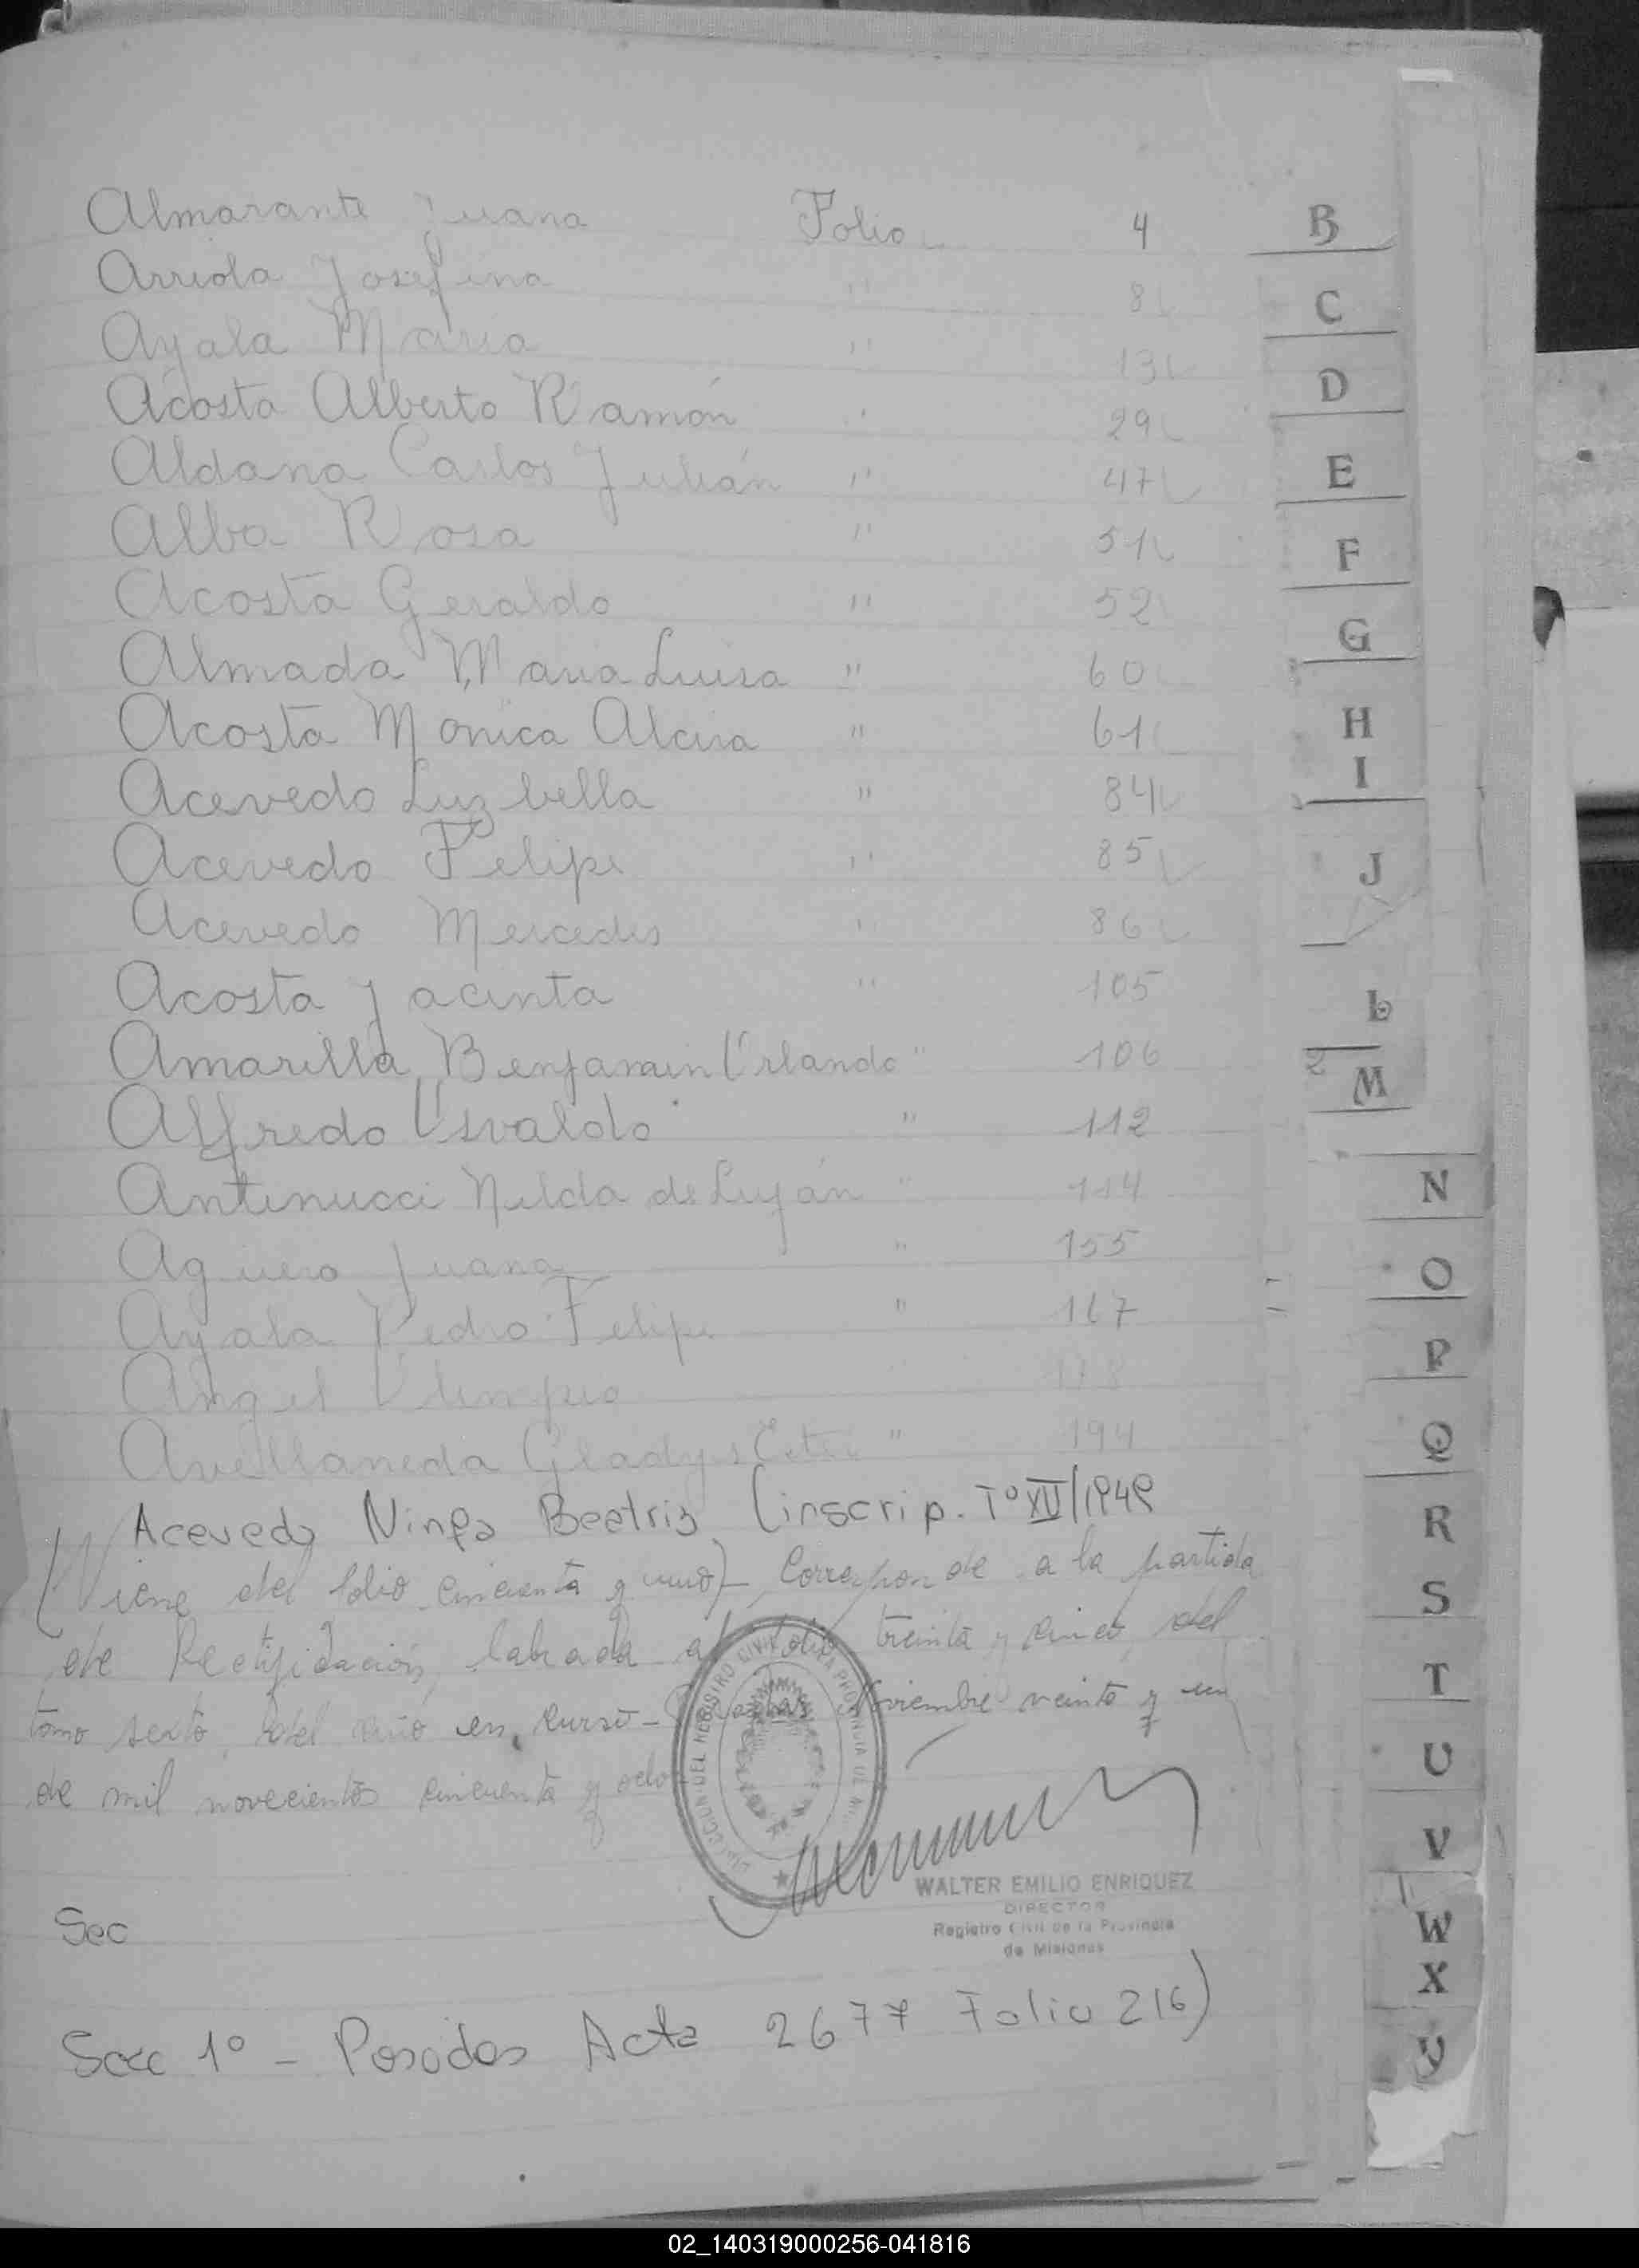 Almarante Juana Folio 4
Arriola Josefina " 8
Ayala Maria " 13
Acosta Alberto Ramón " 29
Aldana Carlos Julián " 47
Alba Rosa " 51
Acosta Geraldo " 52
Almada Maria Luisa " 60
Acosta Monica Alcira " 61
Acevedo Luz bella " 84
Acevedo Felipe " 85
Acevedo Mercedes " 86
Acosta Jacinta " 105
Amarilla Benjamin Orlando " 106
Alfredo Osvaldo " 112
Antinucci Nelda de Luján " 114
Aguero Juana " 155
Ayala Pedro Felipe " 167
Angel Olimpio
Avellaneda Gladys Ester " 194
Acevedo Ninfa Beatriz (inscrip. Tº XII/1949
(Viene del folio cincuenta y uno)- Corresponde a la partida
de Rectificación, labrada al folio treinta y cinco del
tomo sexto, del año en curso- Posadas Noviembre veinte y un
de mil novecientos cincuenta y ocho
DIRECCION DEL REGISTRO CIVIL DE LA PROVINCIA DE
WALTER EMILIO ENRIQUEZ
DIRECTOR
Registro Civil de la Provincia
de Misiones
Sec
Secc 1º - Posadas Acta 2677 Folio 216)
B
C
D
E
F
G
H
I
J
L
2
M
N
O
P
Q
R
S
T
U
V
W
X
Y
02_140319000256-041816